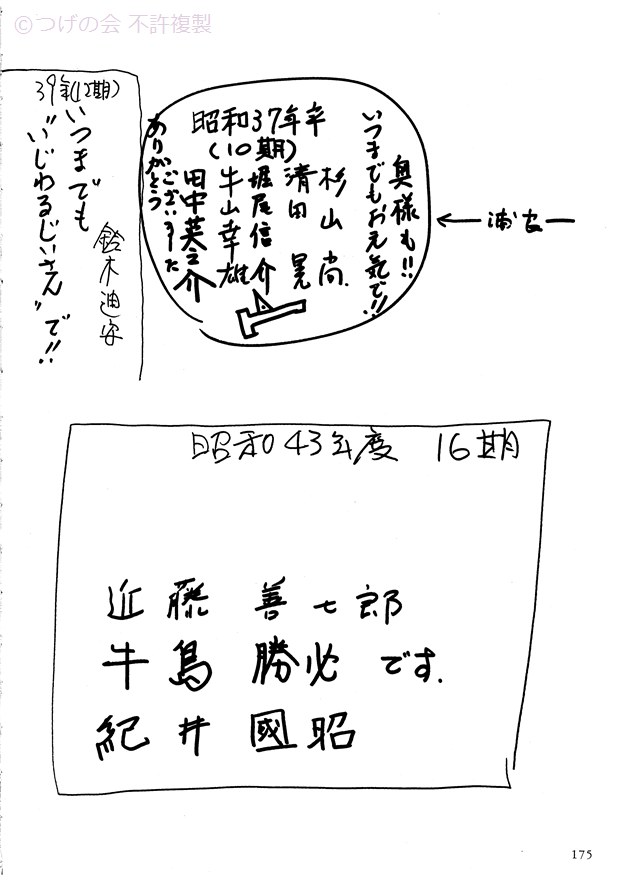 ©つげの会 不許複製
昭和37年卒
(10期)
奥様も!!
いつまでもお元気で!!
杉山 尚.
清田 晃
堀尾信介
牛山幸雄
田中英之介
ございました
ありがとう
浦安
39年(12期)
鈴木迪安
いつまでも
"いじわるじいさん"で!!
昭和43年度 16期
近藤 善七郎
牛島 勝必 です.
紀井 國昭
175